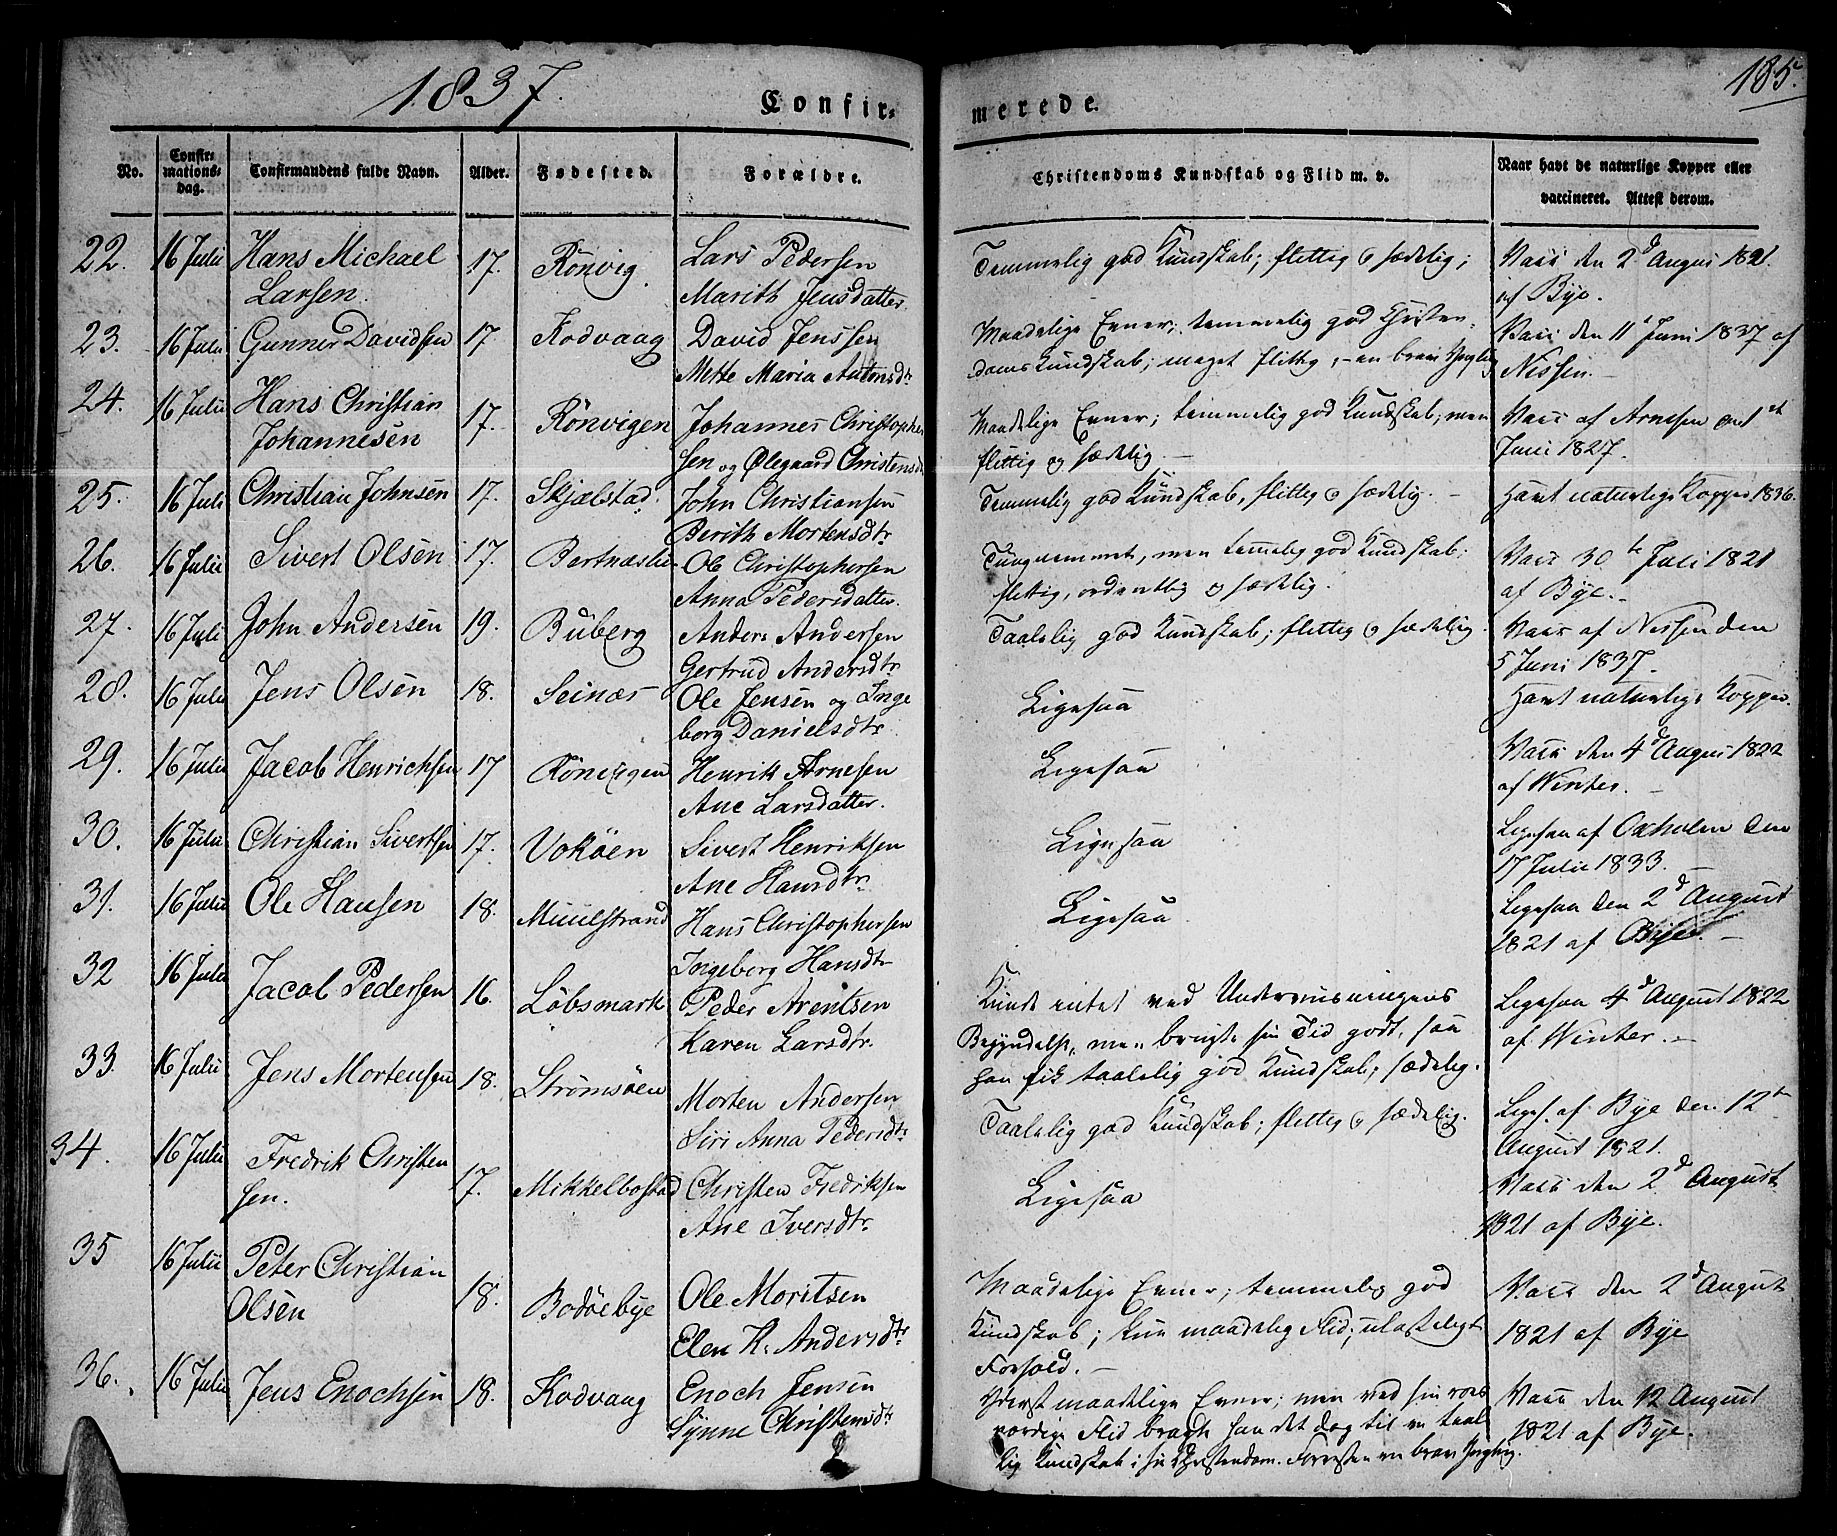 1837.
Confir-
merede.
185.
No.
Confir-
mations-
dag.
Confirmandens fulde Navn.
Alder.
Fødested.
Forældre.
Christendoms Kundskab og Flid m. v.
Naar havt de naturlige Kopper eller
vaccineret. Attest derom.
22. 16 Julii Hans Michael 17. Rönvig Lars Pedersen Temmelig god Kundskab; flittig o sædelig; Vacc den 2d Augus 1821.
Larsen. Marith Jensdatter. af Bye.
23. 16 Julii Gunner Davidsen 17. Kodvaag David Jenssen Maadelige Evner; temmelig god Christen- Vacc den 11te Juni 1837 af
Mette Maria Antonsdtr doms Kundskab; meget flittig, - en brav Yngling Nissen.
24. 16 Julii Hans Christian 17. Rönvigen Johannes Christopher Maadelige Evner; temmelig god Kundskab; men Vacc af Arnesen 1st
Johannesen sen og Ølegaard Christensd flittig og sædelig. Juni 1827.
25. 16 Juli Christian Johnsen 17. Skjælstad. John Christiansen Temmelig god Kundskab, flittig o sædelig. Havt naturlige Kopper 1836.
Berith Mortensdtr
26. 16 Julii Sivert Olsen 17. Bertnæslie Ole Christophersen Tungnemmet, men temmelig god Kundskab; Vacc 30te Juli 1821
Anna Pedersdatter. flittig, ordentlig og sædelig. af Bye.
27. 16 Juli John Andersen 19. Buberg Anders Andersen Taalelig god Kundskab; flittig o sædelig Vacc af Nissen den
Gertrud Andersdtr 5 Juni 1837.
28. 16 Juli Jens Olsen 18. Seinæs Ole Jensen og Inge Ligesaa Havt naturlige Kopper.
borg Danielsdtr
29. 16 Julii Jacob Henrichsen 17 Rönvigen Henrik Arnesen Ligesaa Vacc den 4d Augus 1822
Ane Larsdatter. af Winter.
30. 16 Julii Christian Sivertsen 17. Vokøen Sivert Henriksen Ligesaa Ligesaa af Oxholm den
Ane Hansdtr 17 Julii 1833.
31. 16 Julii Ole Hansen 18. Muulstrand Hans Christophersen Ligesaa Ligesaa den 2d August
Ingeborg Hansdtr 1821 af Bye.
32 16 Julii Jacob Pedersen 16. Löbsmark Peder Arentsen Kunde intet ved Underviisningens Ligesaa 4d August 1822
Karen Larsdtr. Begyndelse, men brugte sin Tid godt, saa af Winter.
han fik taalelig god Kundskab; sædelig.
33. 16 Julii Jens Mortensen 18. Strømsøen Morten Andersen Taalelig god Kundskab; flittig o sædelig. Liges. af Bye den 12te
Siri Anna Pedersdtr August 1821.
34. 16 Julii Fredrik Christen 17. Mikkelbostad Christen Fredriksen Ligesaa Vacc den 2d August
sen. Ane Iversdtr 1821 af Bye.
35 16 Julii Peter Christian 18. Bodöebye Ole Moritsen Maadelige Evner; temmelig god Vacc den 2d August
Olsen Elen K. Andersdtr Kundskab; kun maadelig Flid; ulasteligt 1821 af Bye
Forhold.
36. 16 Julii Jens Enochsen 18. Kodvaag Enoch Jensen Yderst maadelige Evner; men ved sin roes Vacc den 12 August
Synne Christensdtr værdige Flid bragte han det dog til en taale 1821 af Bye.
lig Kundskab i sin Christendom. Forresten en brav Yngling.